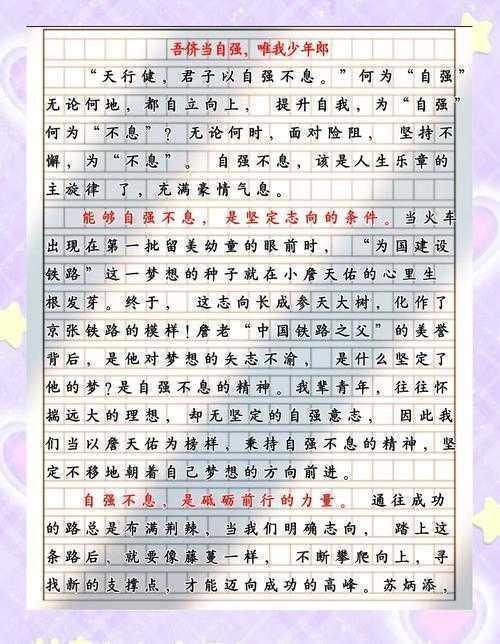 吾侪当自强,唯我少年郎
“天行健,君子以自强不息。”何为“自强”
无论何地,都自立向上, 提升自我,为“自强”
何为“不息”? 无论何时,面对险阻, 坚持不
懈,为“不息”。 自强不息,该是人生乐章的
主旋律 了,充满豪情气息。
能够自强不息,是坚定志向的条件。当火车
出现在第一批留美幼童的眼前时, “为国建设
铁路”这一梦想的种子就在小詹天佑的心里生
根发芽。终于, 这志向长成参天大树,化作了
京张铁路的模样!詹老“中国铁路之父”的美誉
背后,是他对梦想的矢志不渝, 是什么坚定了
他的梦?是自强不息的精神。我辈青年,往往怀
揣远大的理想, 却无坚定的自强意志, 因此我
们当以詹天佑为榜样,秉持自强不息的精神,坚
定不移地朝着自己梦想的方向前进。
自强不息,是砥砺前行的力量。 通往成功
的路总是布满荆棘,当我们明确志向, 踏上这
条路后、就要像藤蔓一样, 不断攀爬向上,寻
找新的支撑点,才能迈向成功的高峰。苏炳添,